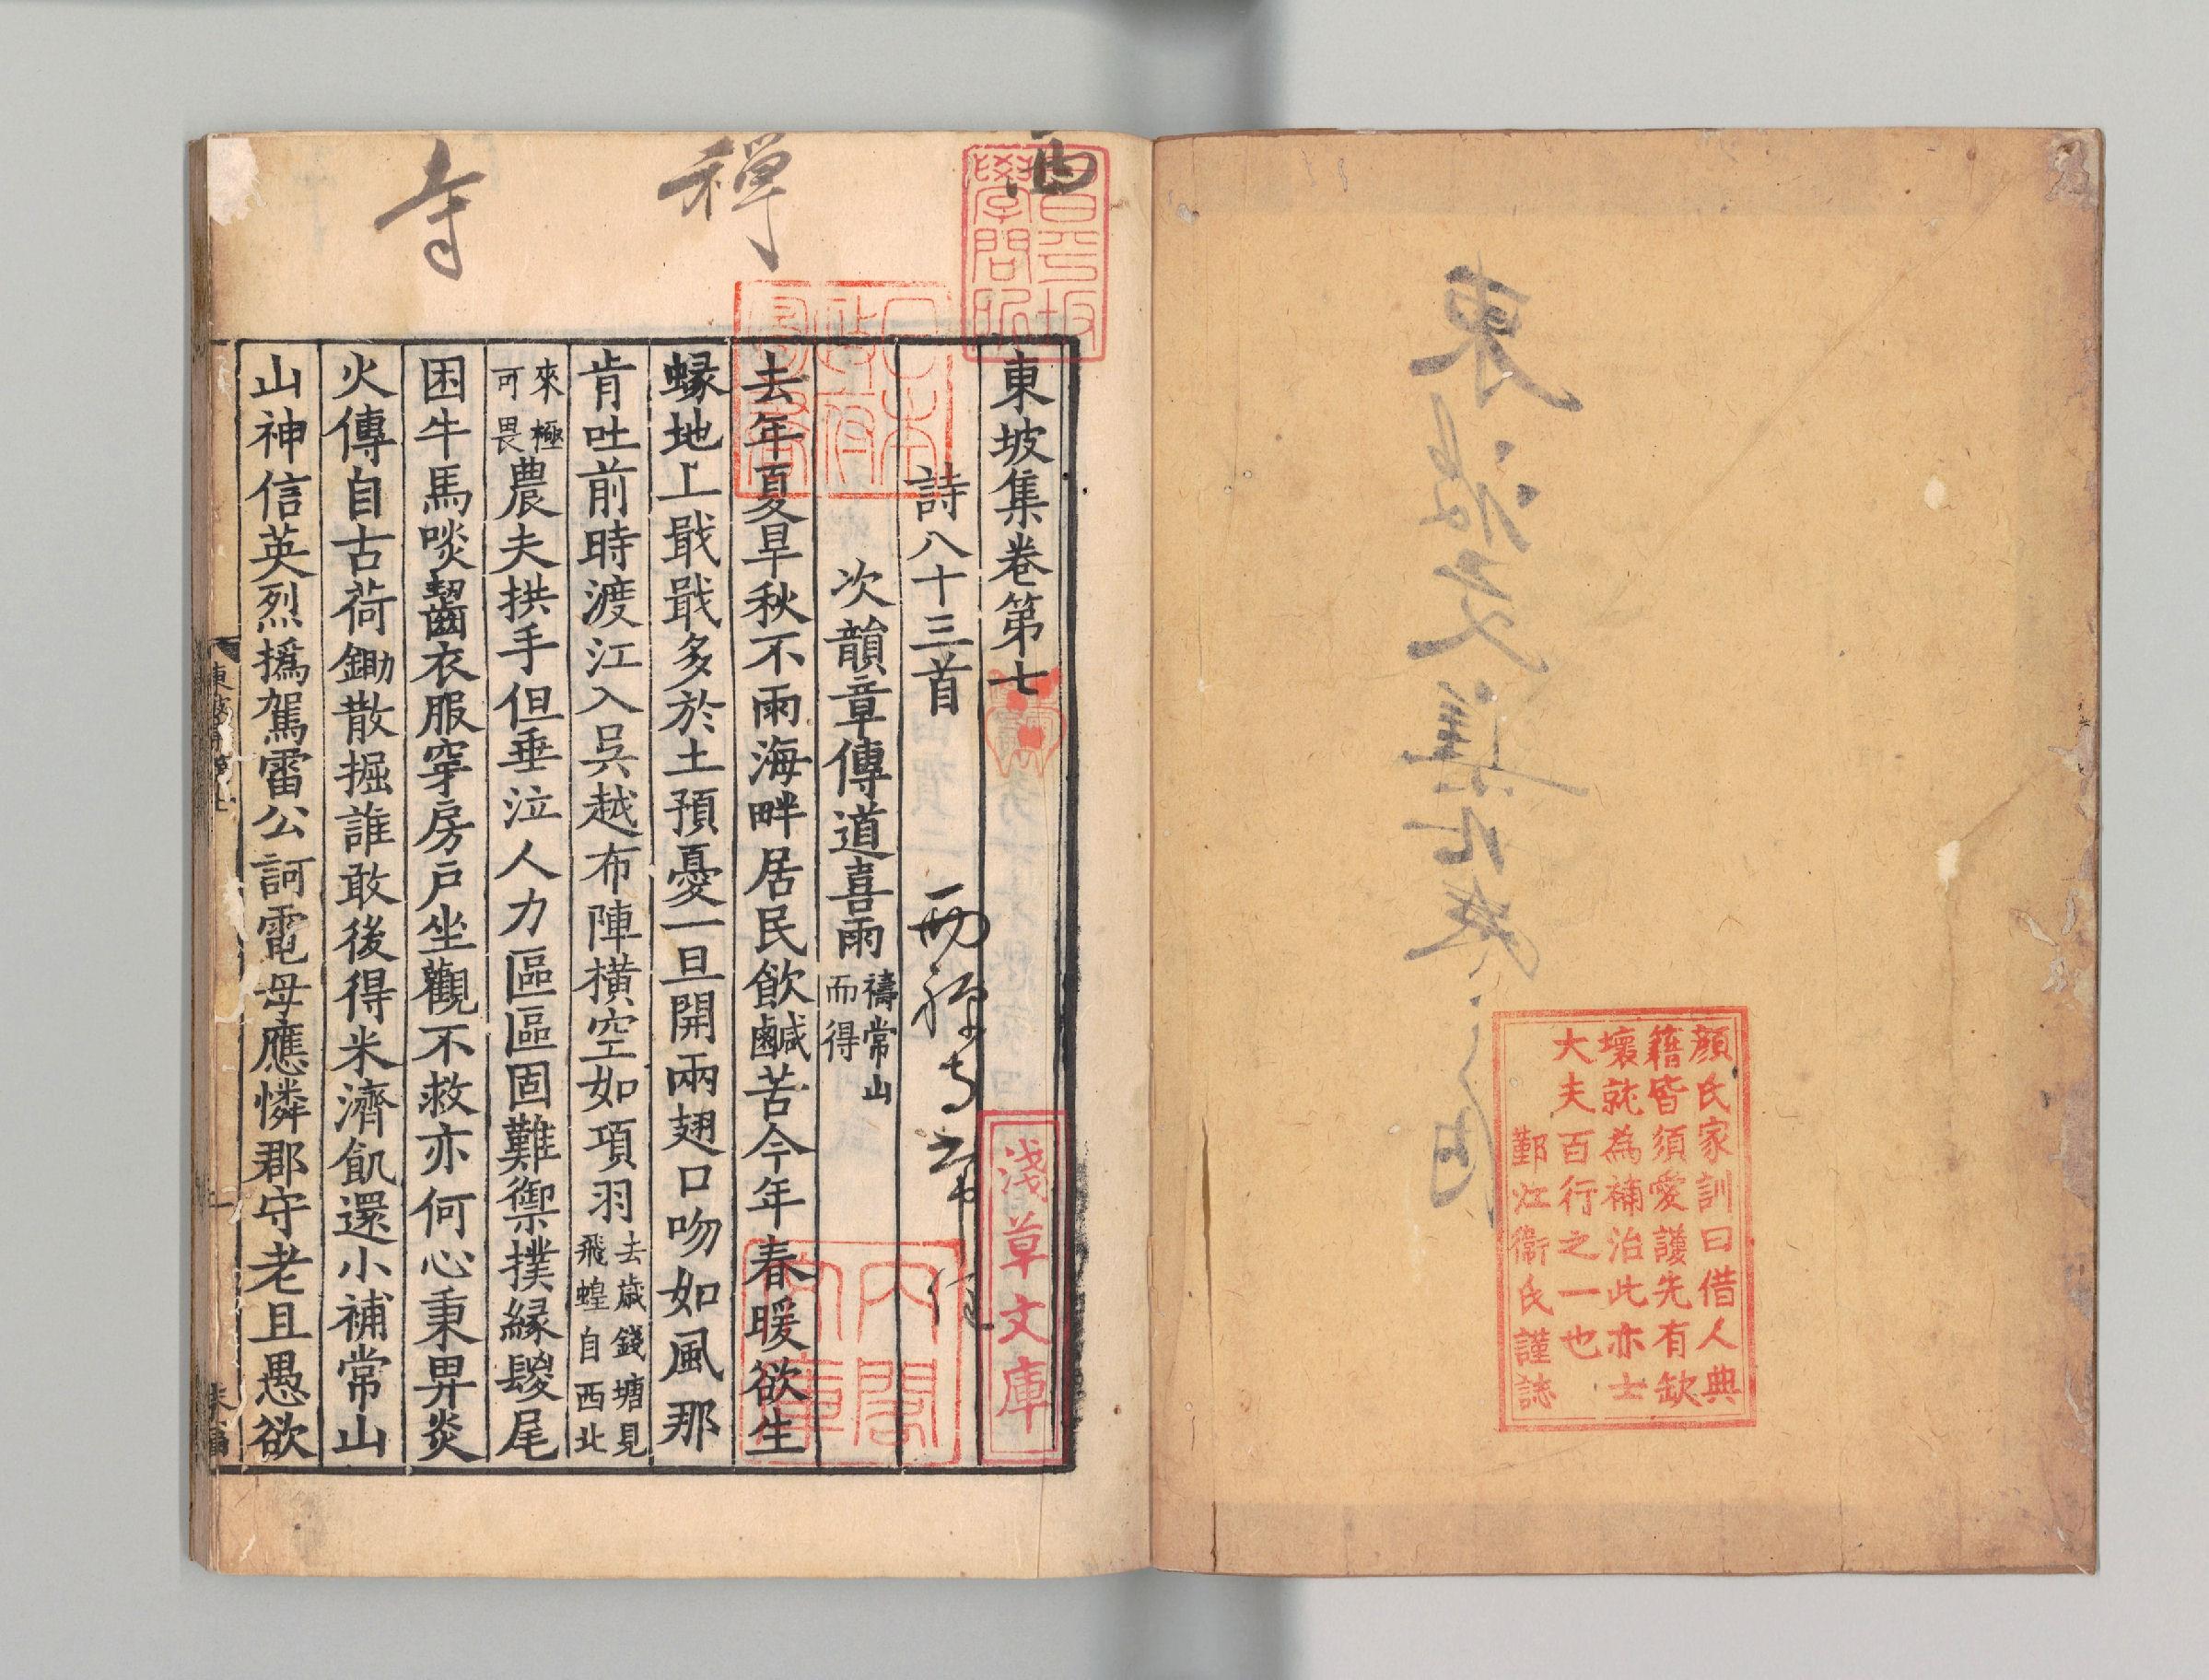 顔氏家訓曰借人典
籍皆須愛護先有缺
壞就為補治此亦士
大夫百行之一也
鄞江衞氏謹誌
西
禪
寺
昌平坂
學問所
日本
政府
圖書
淺草文庫
內閣
文庫
東坡集卷第七
詩八十三首
西禪寺常住
次韻章傳道喜雨 禱常山
而得
去年夏旱秋不雨海畔居民飲鹹苦今年春暖欲生
蝝地上戢戢多於土預憂一旦開兩翅口吻如風那
肯吐前時渡江入吳越布陣橫空如項羽 去歲錢塘見
飛蝗自西北
來極
可畏 農夫拱手但垂泣人力區區固難禦撲緣鬉尾
困牛馬啖齧衣服穿房戶坐觀不救亦何心秉畀炎
火傳自古荷鋤散掘誰敢後得米濟飢還小補常山
山神信英烈撝駕雷公訶電母應憐郡守老且愚欲